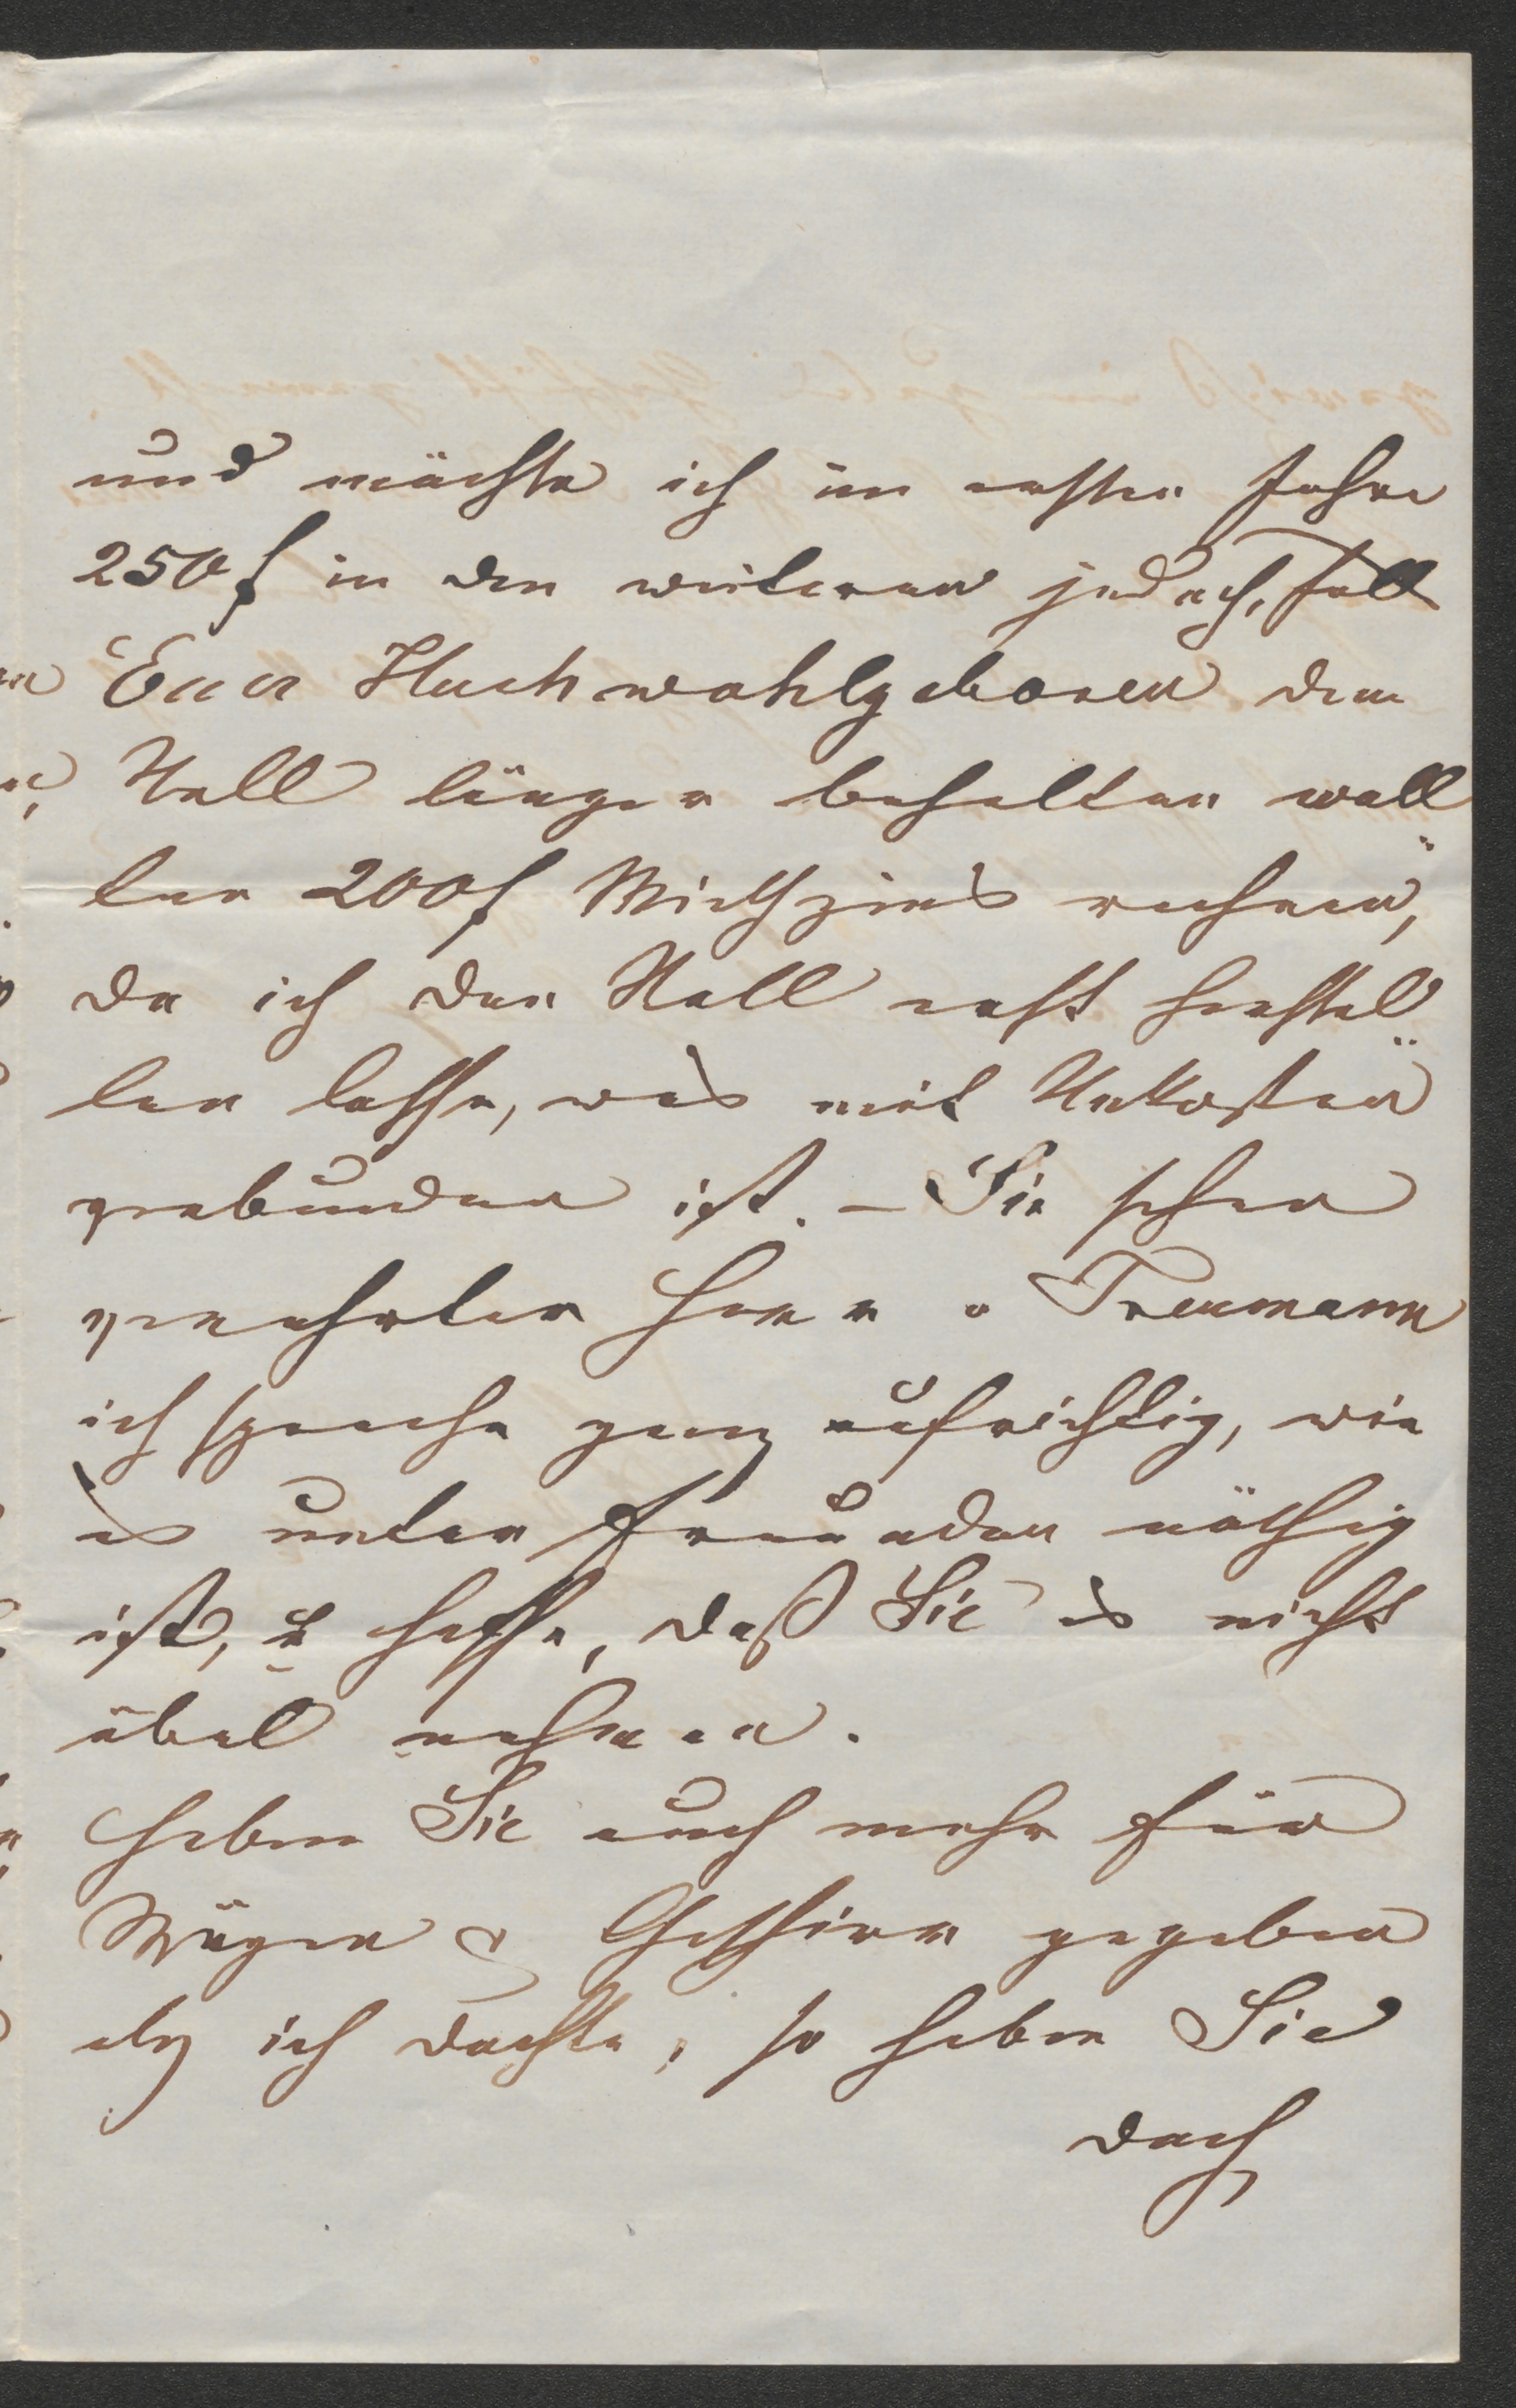 und möchte ich im ersten Jahre
250 f in den weiteren jedoch, Fall
Euer Hochwohlgeboren den
Stall länger behalten woll
ten 200 f Miethzins rechnen,
da ich den Stall erst herstel
len lasse, was mit Unkosten
verbunden ist. – Sie sehen
verehrter Herr v Treumann
ich spreche ganz aufrichtig, wie
es unter Freunden nöthig
ist, & hoffe, daß Sie es nicht
übel nehmen.
Haben Sie auch mehr für
Wägen & Geschirr gegeben
als ich dachte, so haben Sie
doch